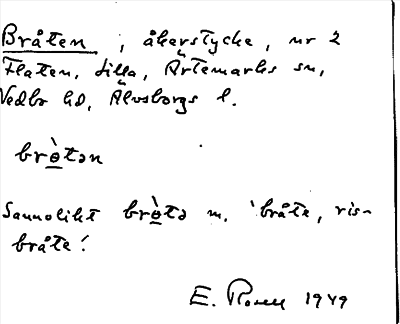 Bråten, åkerstycke, nr 2
Flaten, lilla, Ärtemarks sn,
Vedbo hd, Älvsborgs l.
brɵ̀tən
Sannolikt brɵ̀tə m. 'bråte, ris-
bråte'.
E. Rosell 1949